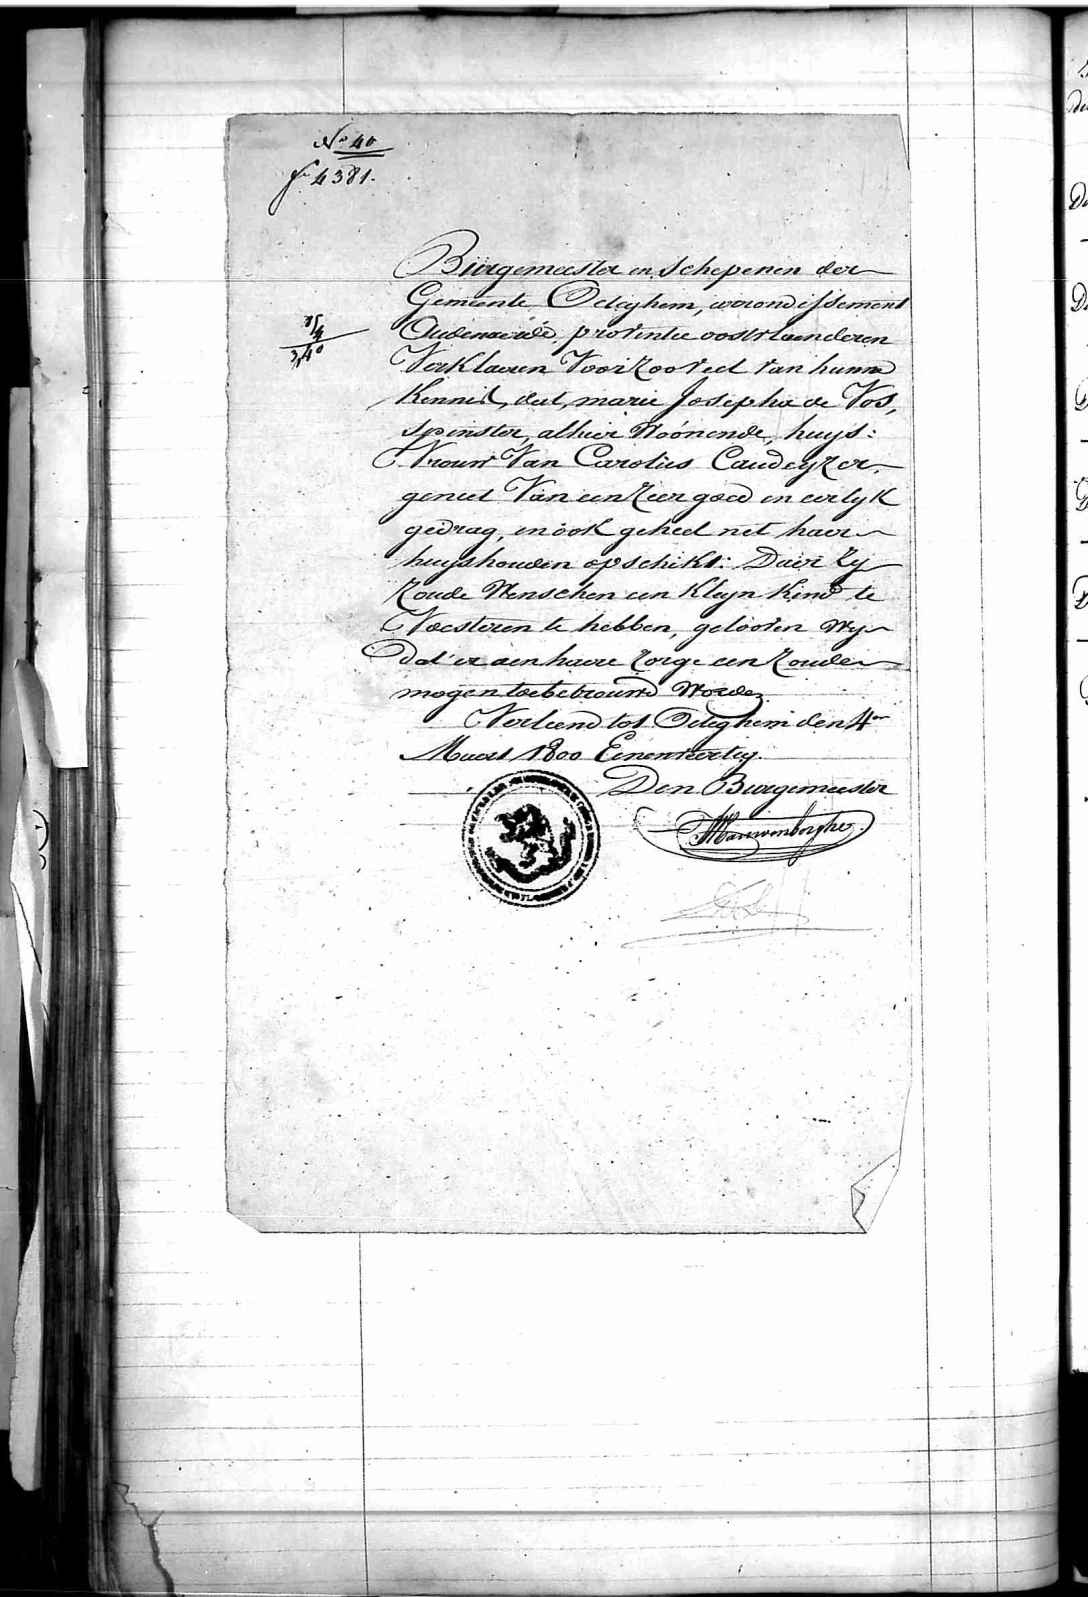 No 40
fo 4381.
Burgemeester en Schepenen der
Gemeente Oeteghem, arrondissement
Audenaerde, provintie oostvlaenderen
Verklaeren Voor Zoo veel van hunne
Kennis, dat, marie Josepha de Vos,
spinster, alhier Woónende, huys:
Vrouw Van Carolus Caudeyzer,
geniet Van een Zeer goed en eerlyk
gedrag, en ook geheel net haer
huyshouden opschikt: Daer Zy
Zoude Wenschen een Kleyn Kind te
Voesteren te hebben, gelooven Wy
dat er aen haere Zorge een Zoude
mogen toebetrouwd Worden
Verleend tot Oeteghem den 4en
Maert 1800 Eenenveertig.
Den Burgemeester